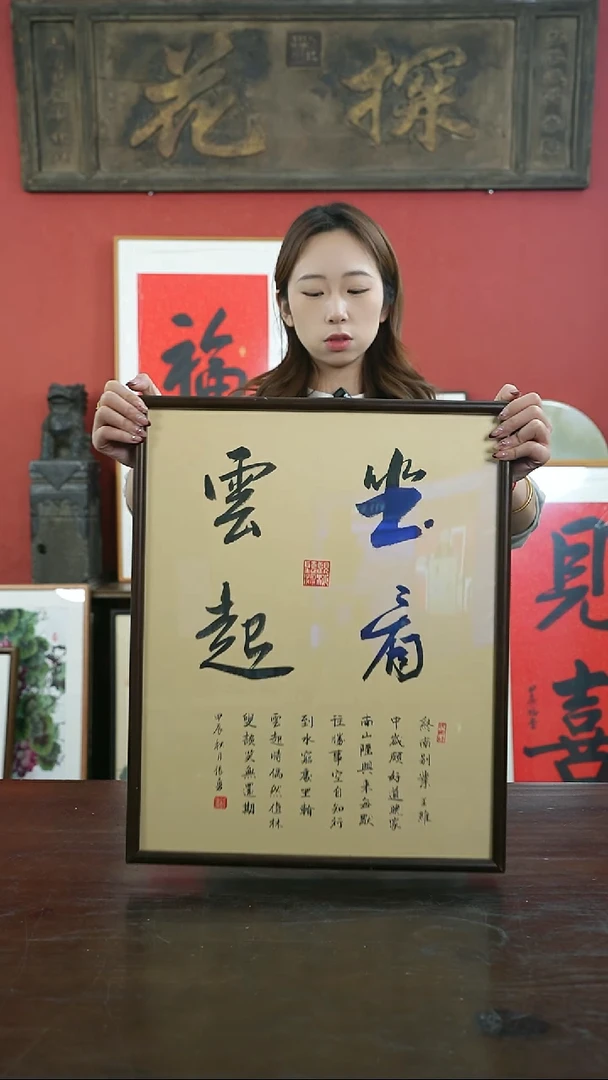 探花
福
坐看
雲起
終南別業 王維
中歲頗好道晚家
南山陲興來每獨
往勝事空自知行
到水窮處坐看
雲起時偶然值林
叟談笑無還期
甲辰秋月
見喜